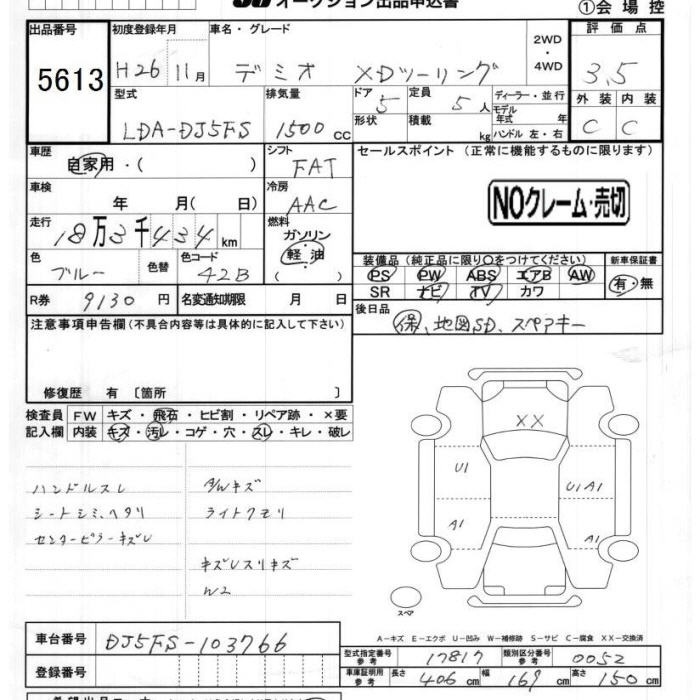 オークション出品申込書
①会場控
出品番号
5613
初度登録年月
H26 11月
車名・グレード
デミオ XDツーリング
2WD
・4WD
評価点
3.5
型式
LDA-DJ5FS
排気量
1500 cc
ドア
5
定員
5人
形状
積載
kg
ディーラー・並行
モデル年式 年
ハンドル 左・右
外装 内装
C C
車歴
自家用・( )
シフト
FAT
セールスポイント (正常に機能するものに限ります)
NOクレーム・売切
車検
年 月( 日)
冷房
AAC
走行
18万3千434km
燃料
ガソリン
軽・油
( )
色
ブルー
色替
色コード
42B
装備品(純正品に限り○をつけてください)
PS PW ABS エアB AW
SR ナビ TV カワ
新車保証書
有・無
R券 9130円
名変通知期限 月 日
後日品
保、地図SD、スペアキー
注意事項申告欄(不具合内容等は具体的に記入して下さい)
修復歴 有〔箇所 〕
検査員記入欄
FW キズ・飛石・ヒビ割・リペア跡・×要
内装 キズ・汚レ・コゲ・穴・スレ・キレ・破レ
ハンドルスレ
シートシミ、ヘタリ
センターピラーキズレ
A/Wキズ
ライトクモリ
キズレスリキズ
W2
XX
U1
A1
U1A1
A1
スペア
A-キズ E-エクボ U-凹み W-補修跡 S-サビ C-腐食 XX-交換済
車台番号
DJ5FS-103766
登録番号
型式指定番号
参考
17817
類別区分番号
参考
0052
車庫証明用
参考
長さ 406cm 幅 169cm 高さ 150cm